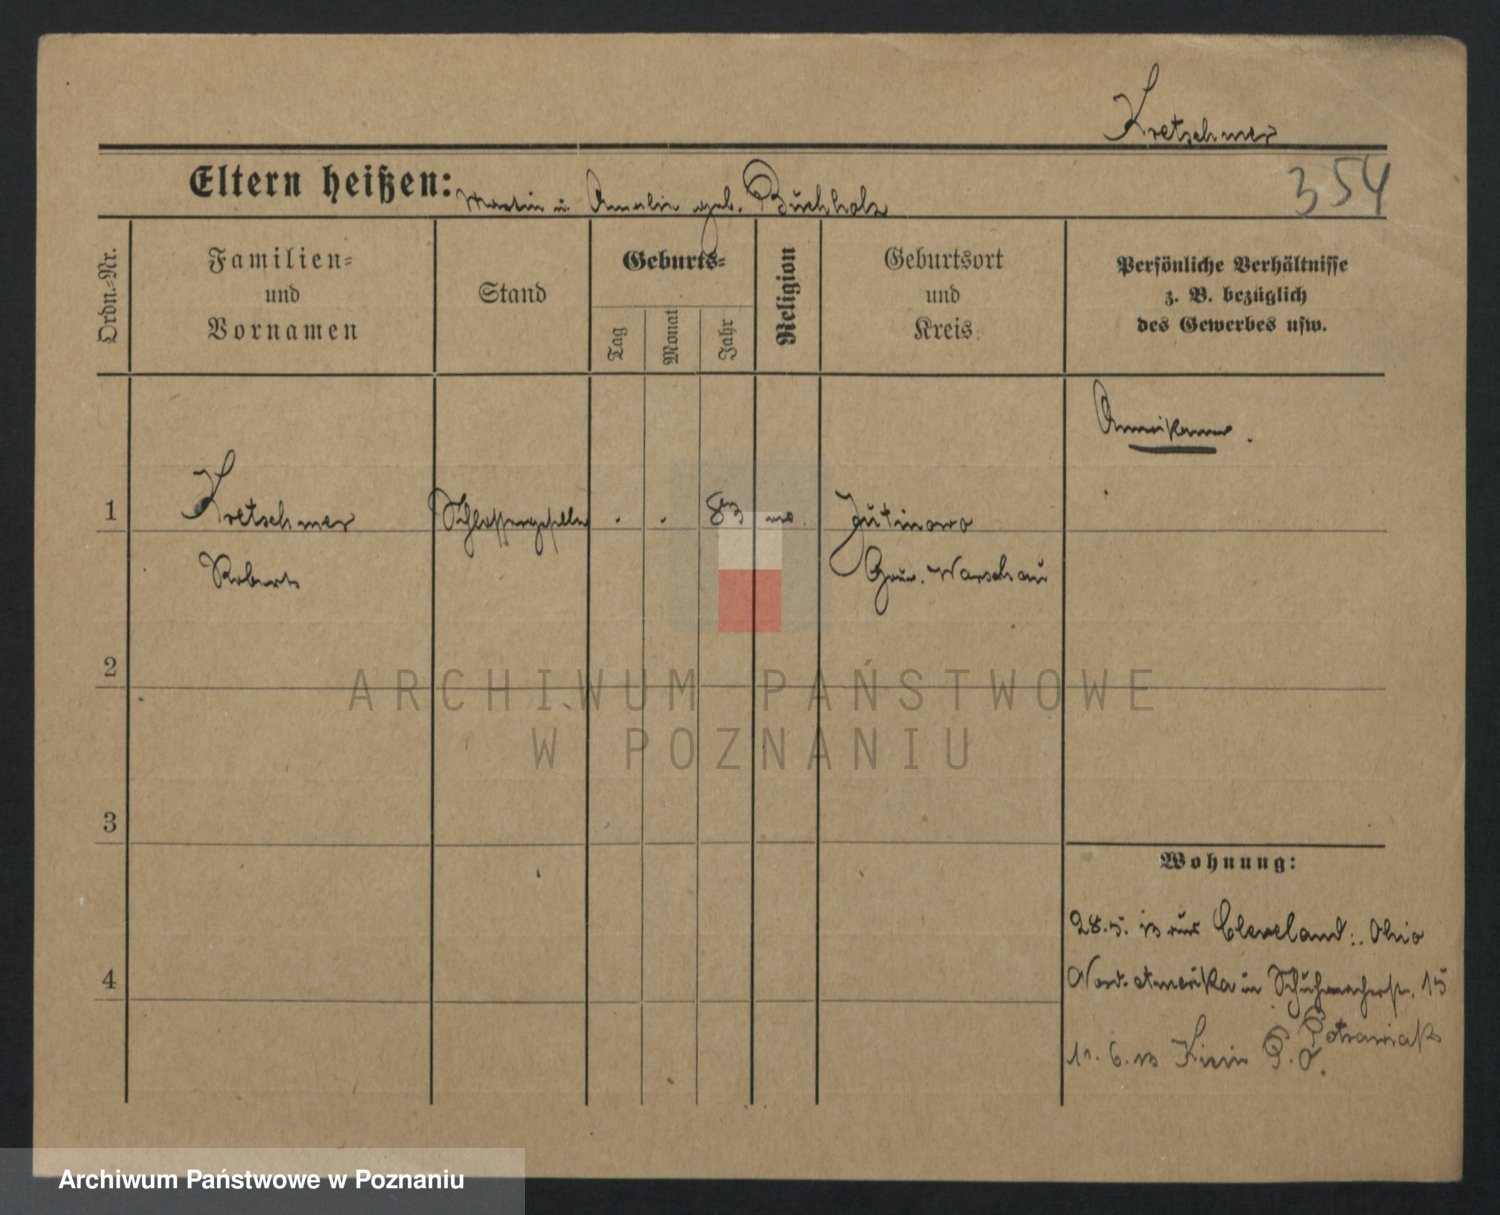 Kretschmer
354
Eltern heißen: Martin u. Amalie geb. Buchholz
Ordn.-Nr.
Familien-
und
Vornamen
Stand
Geburts-
Tag
Monat
Jahr
Religion
Geburtsort
und
Kreis
Persönliche Verhältnisse
z. B. bezüglich
des Gewerbes usw.
Amerikaner.
1 Kretschmer Schlossergeselle . . 83 Jutinowo
Robert Gouv. Warschau
2
3
4
Wohnung:
28.5. 13 aus Cleveland: Ohio
Nord-Amerika in Schuhmacherstr. 15
Potrawiak
11. 6. 13
ARCHIWUM PAŃSTWOWE
W POZNANIU
Archiwum Państwowe w Poznaniu